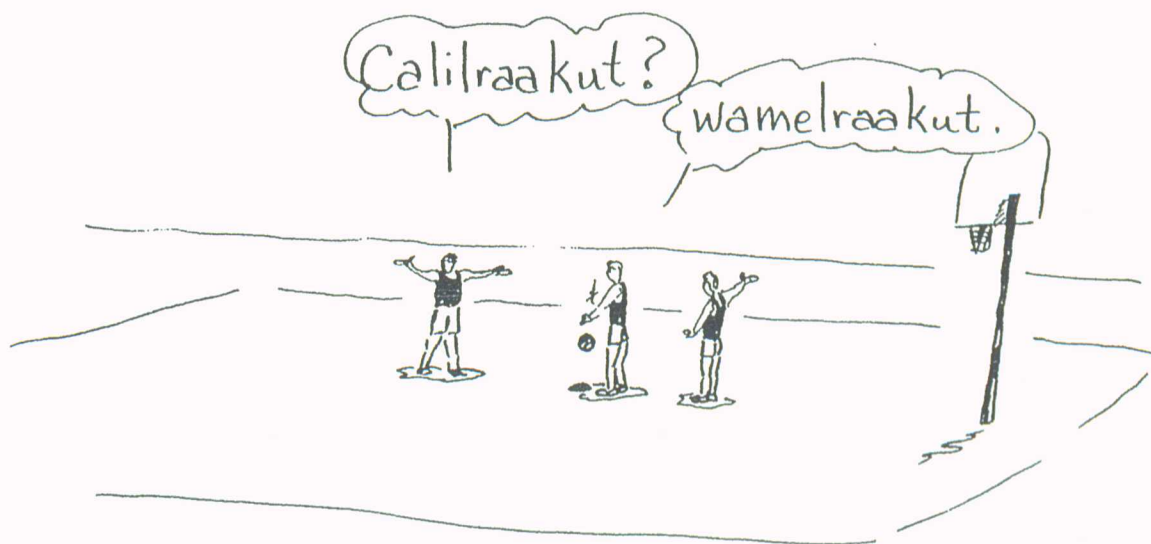 Calilraakut?
wamelraakut.